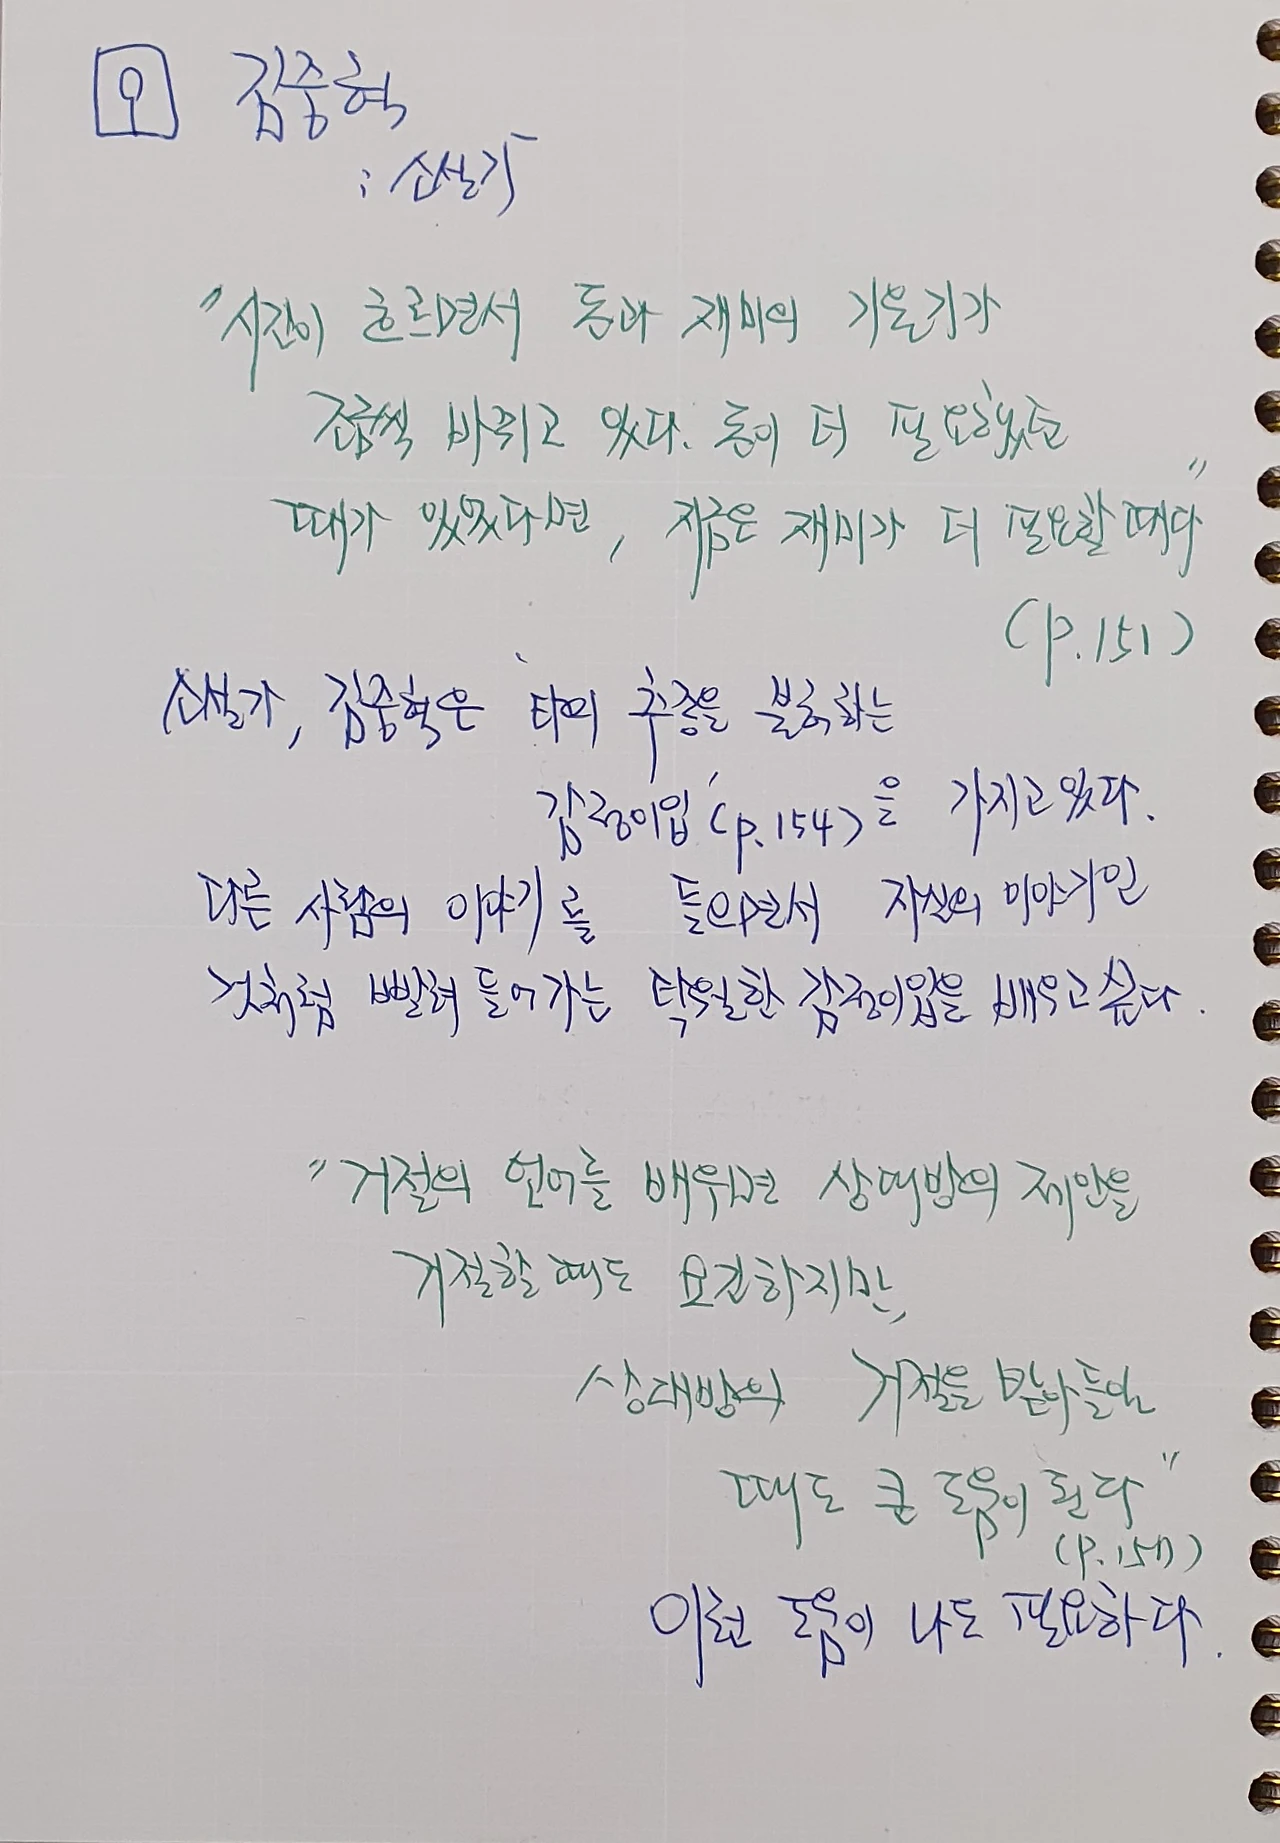 9 김중혁
: 소설가
"시간이 흐르면서 돈과 재미의 기울기가
조금씩 바뀌고 있다. 돈이 더 필요했던
때가 있었다면, 지금은 재미가 더 필요할 때다"
(p.151)
소설가, 김중혁은 '타의 추종을 불허하는
감정이입'(p.154)을 가지고 있다.
다른 사람의 이야기를 들으면서 자신의 이야기인
것처럼 빨려 들어가는 탁월한 감정이입을 배우고 싶다.
"거절의 언어를 배워두면 상대방의 제안을
거절할 때도 요긴하지만,
상대방의 거절을 받아들일
때도 큰 도움이 된다"
(p.157)
이런 도움이 나도 필요하다.